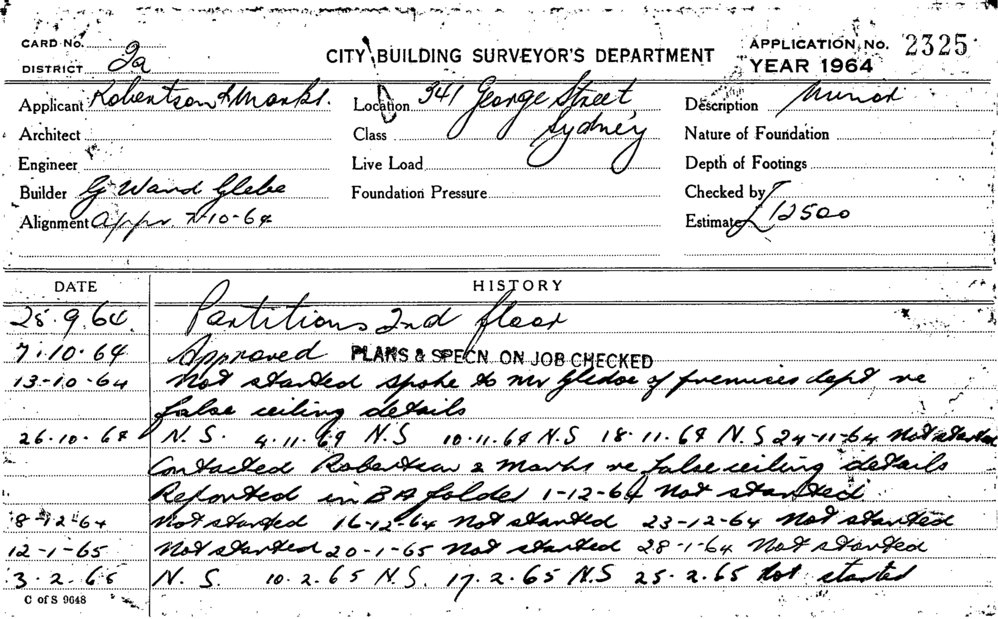 CARD No.
DISTRICT 9a
CITY BUILDING SURVEYOR'S DEPARTMENT
APPLICATION No. 2325
YEAR 1964
Applicant Robertson & Marks. Location 341 George Street, Description Minor
Architect Class Sydney Nature of Foundation
Engineer Live Load Depth of Footings
Builder G Ward Glebe Foundation Pressure Checked by
Alignment Appr. 7-10-64 Estimate £12500
DATE HISTORY
25.9.64 Partitions 2nd floor
7.10.64 Approved PLANS & SPECN. ON JOB CHECKED
13-10-64 Not started spoke to Mr Gledoe of premises dept re
false ceiling details
26.10.64 N.S. 4.11.64 N.S 10.11.64 N.S 18.11.64 N.S 24-11-64 Not started
Contacted Robertson & Marks re false ceiling details
Reported in BA folder 1-12-64 Not started
8-12-64 Not started 16-12-64 Not started 23-12-64 Not started
12-1-65 Not started 20-1-65 Not started 28-1-64 Not started
3.2.65 N.S. 10.2.65 N.S. 17.2.65 N.S 25.2.65 Not started
C of S 9648